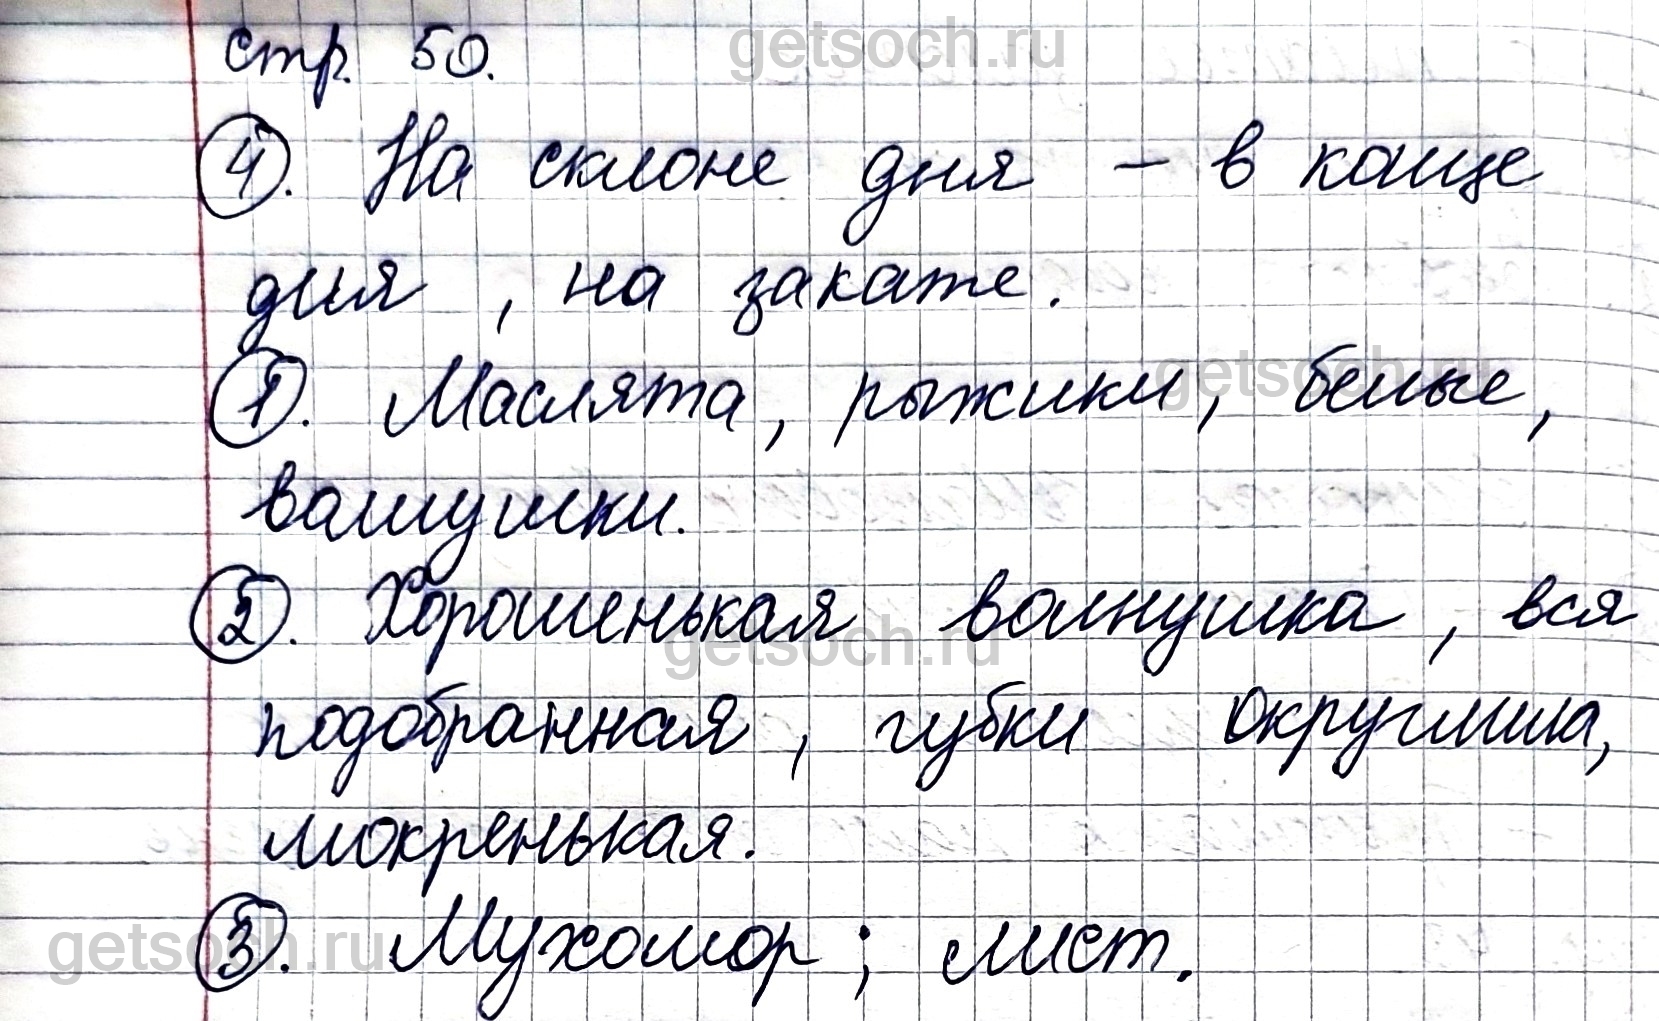 getsoch.ru
стр. 50.
4. На склоне дня – в конце
дня, на закате.
getsoch.ru
1. Маслята, рыжики, белые,
волнушки.
2. Хорошенькая волнушка, вся
getsoch.ru
подобранная, губки округлила,
мокренькая.
getsoch.ru
3. Мухомор; лист.